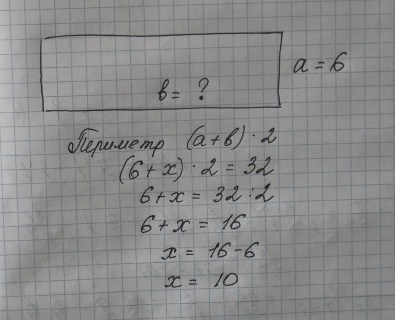 a = 6
в = ?
Периметр (a + в) · 2
(6 + x) · 2 = 32
6 + x = 32 : 2
6 + x = 16
x = 16 - 6
x = 10